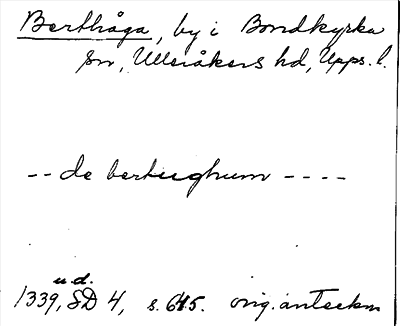 Berthåga, by i Bondkyrka
sn, Ulleråkers hd, Upps. l.
-- de bertueghum ----
u.d.
1339, SD 4, s. 615. orig.anteckn